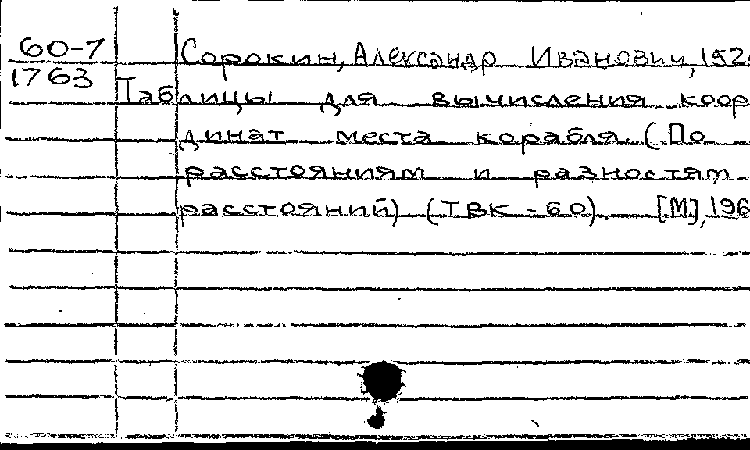 60-7 Сорокин, Александр Иванович, 192
1763 Таблицы для вычисления коор
динат места корабля. (По
расстояниям и разностям
расстояний) (ТВК - 60). [М], 196